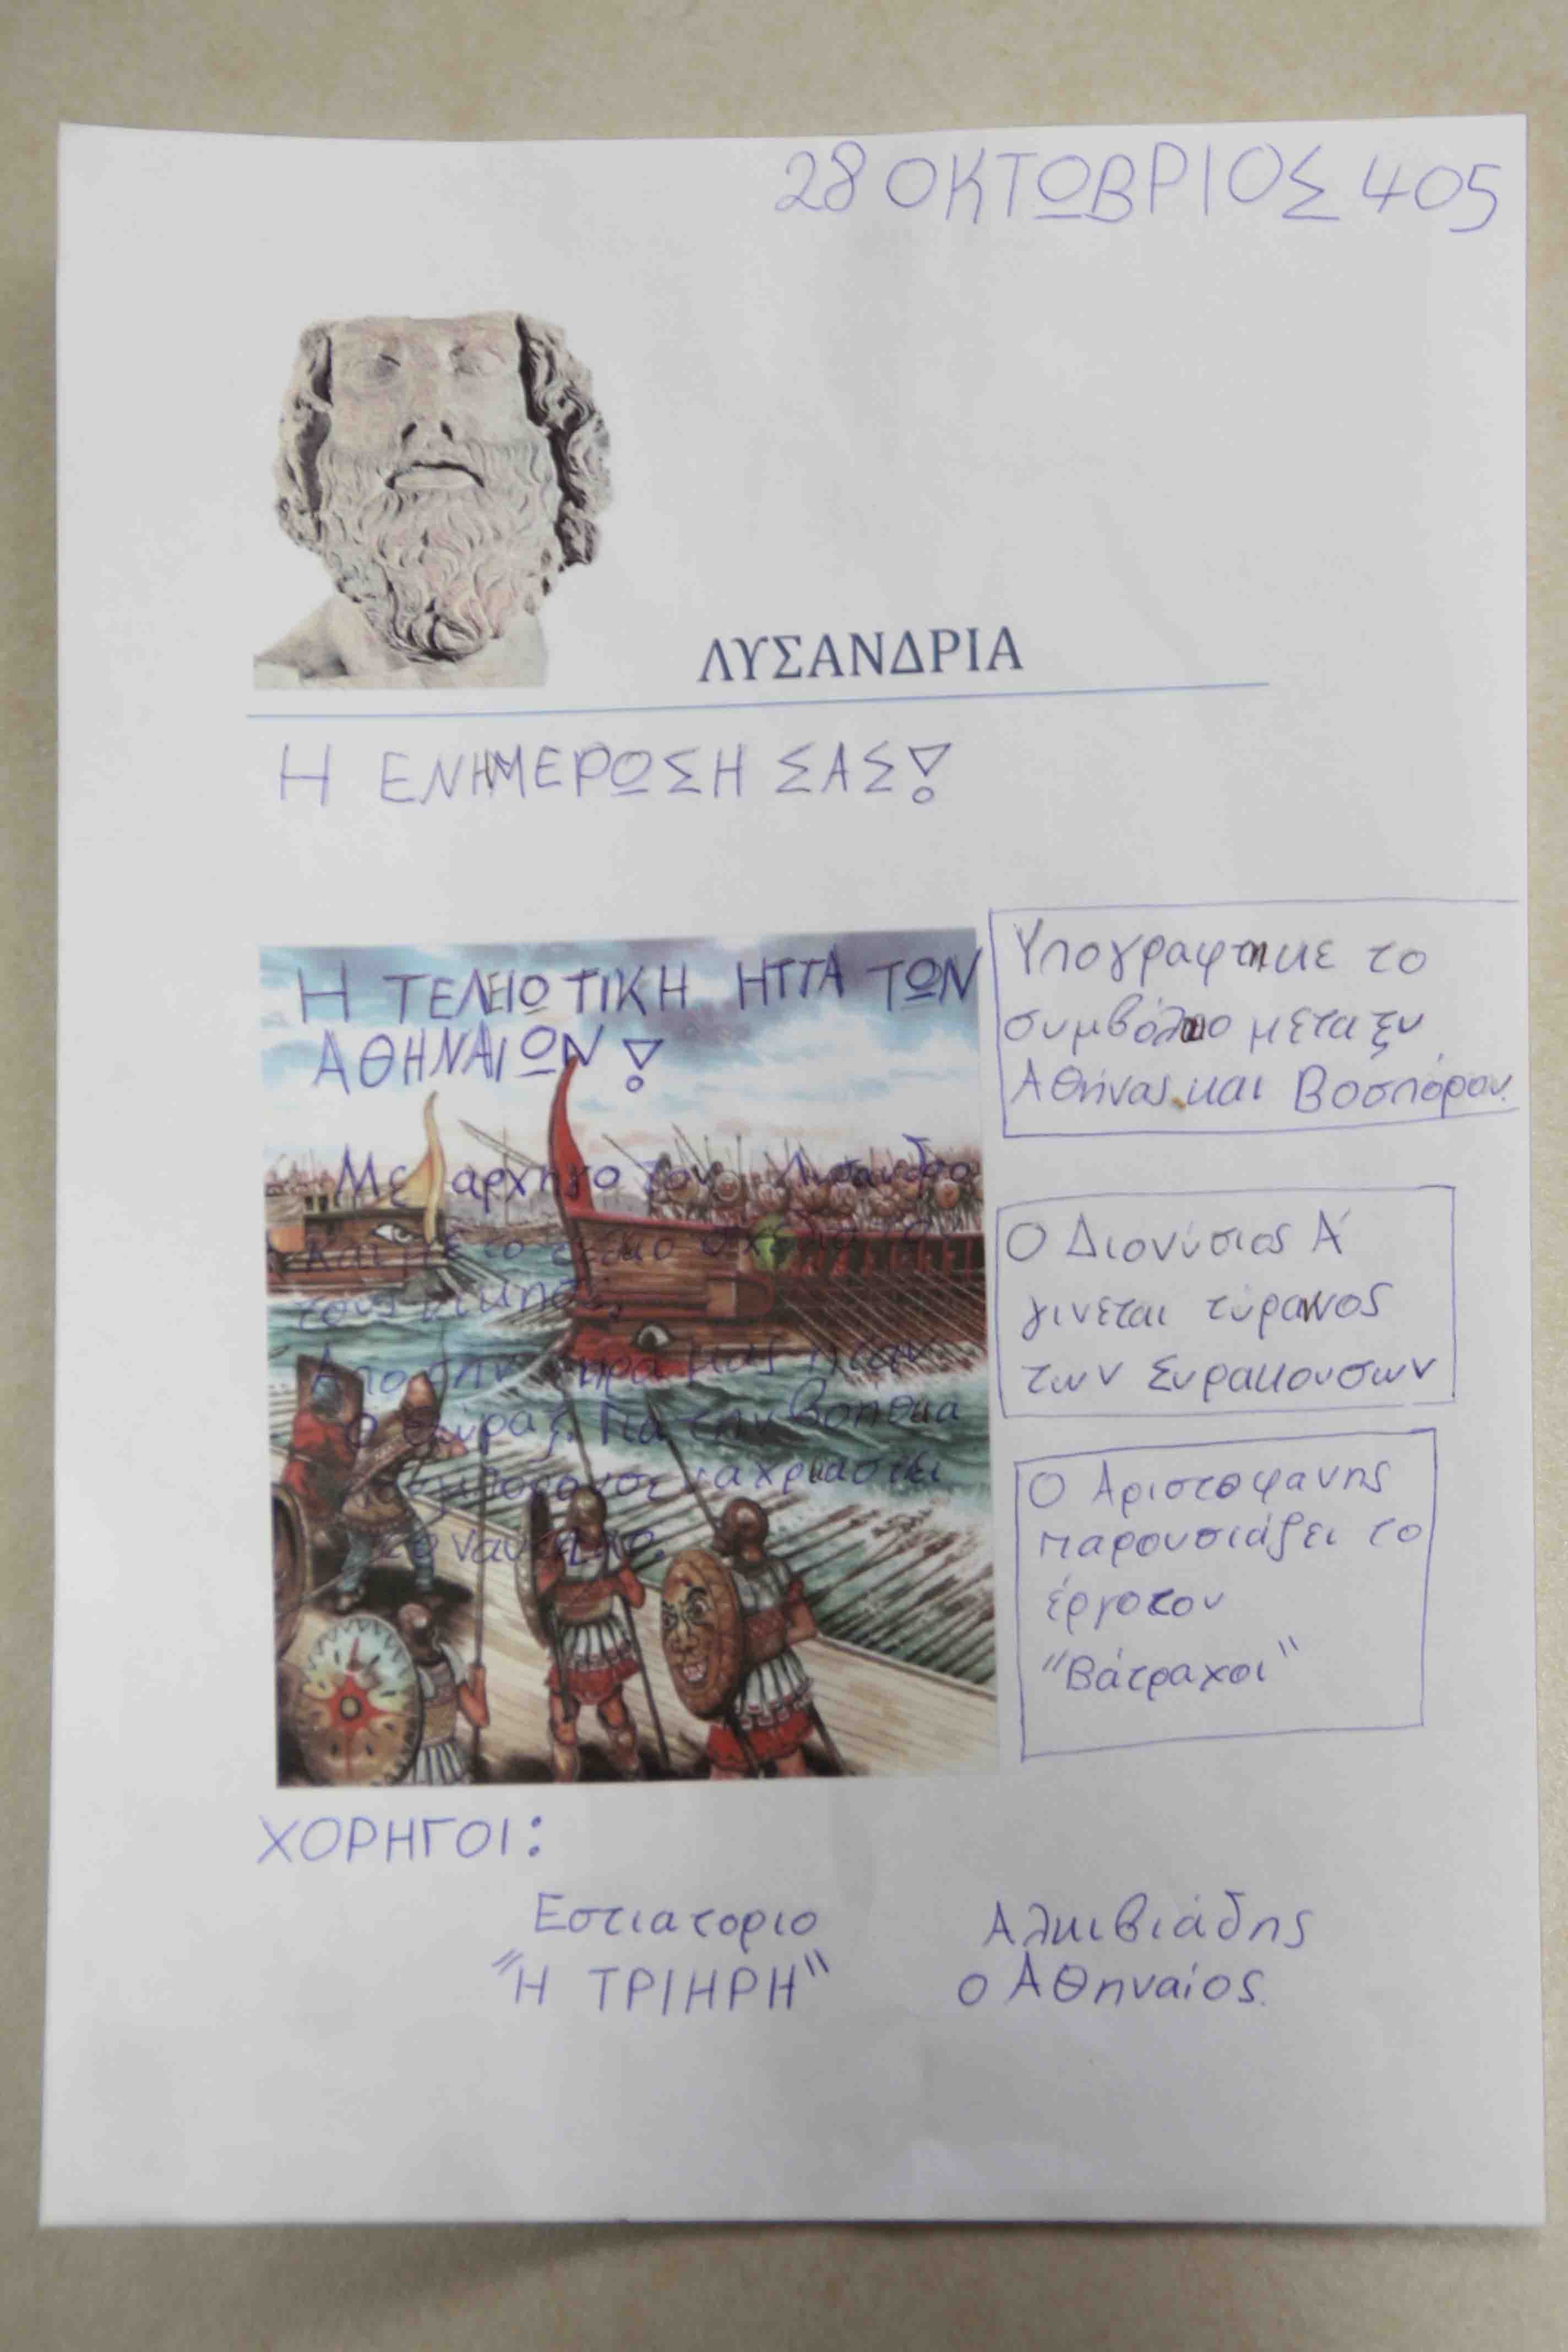 28 ΟΚΤΩΒΡΙΟΣ 405
ΛΥΣΑΝΔΡΙΑ
Η ΕΝΗΜΕΡΩΣΗ ΣΑΣ!
Η ΤΕΛΕΙΩΤΙΚΗ ΗΤΤΑ ΤΩΝ
ΑΘΗΝΑΙΩΝ!
Με αρχηγο τον Λυσανδρο
και με το
τους
Απο την μας
ο Θώρας. Για την βοήσια
το ναυτικο.
Υπογραφτηκε το
συμβόλαιο μεταξυ
Αθήνας και Βοσπόρου.
Ο Διονύσιος Α'
γινεται τύρανος
των Συρακουσων
Ο Αριστοφανης
παρουσιάζει το
έργο του
"Βάτραχοι"
ΧΟΡΗΓΟΙ:
Εστιατοριο
"Η ΤΡΙΗΡΗ"
Αλκιβιάδης
ο Αθηναίος.